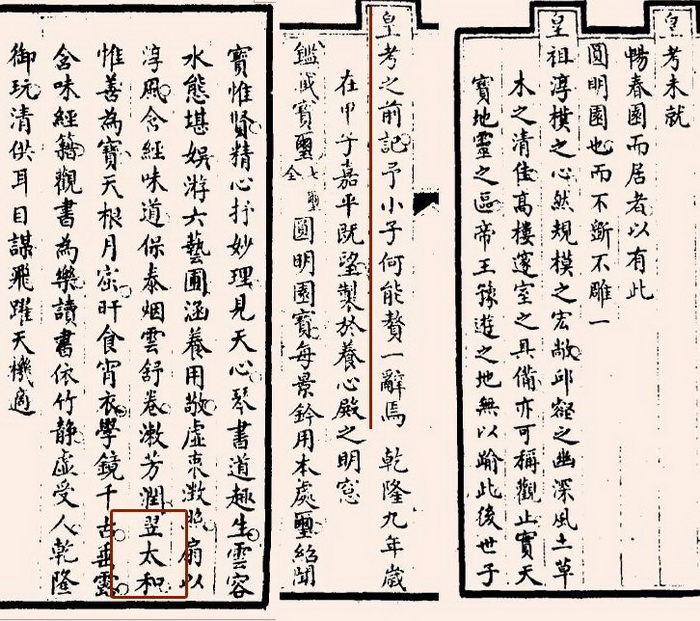 皇考未就
暢春園而居者以有此
圓明園也而不斲不雕一
皇祖淳樸之心然規模之宏敞邱壑之幽深風土草
木之清佳高樓邃室之具備亦可稱觀止實天
寶地靈之區帝王豫遊之地無以踰此後世子
皇考之前記予小子何能贅一辭焉 乾隆九年歲
在甲子嘉平既望製於養心殿之明窻
鑑藏寶璽七璽全 圓明園寶每景鈐用本處璽紹聞
寶惟賢精心抒妙理見天心琴書道趣生雲容
水態堪娛游六藝圃涵養用敬虛衷澂照扇以
淳風含經味道保泰烟雲舒卷漱芳潤翌太和
惟善為寶天根月窟旰食宵衣學鏡千古垂露
含味經籍觀書為樂讀書依竹靜虛受人乾隆
御玩清供耳目謀飛躍天機適